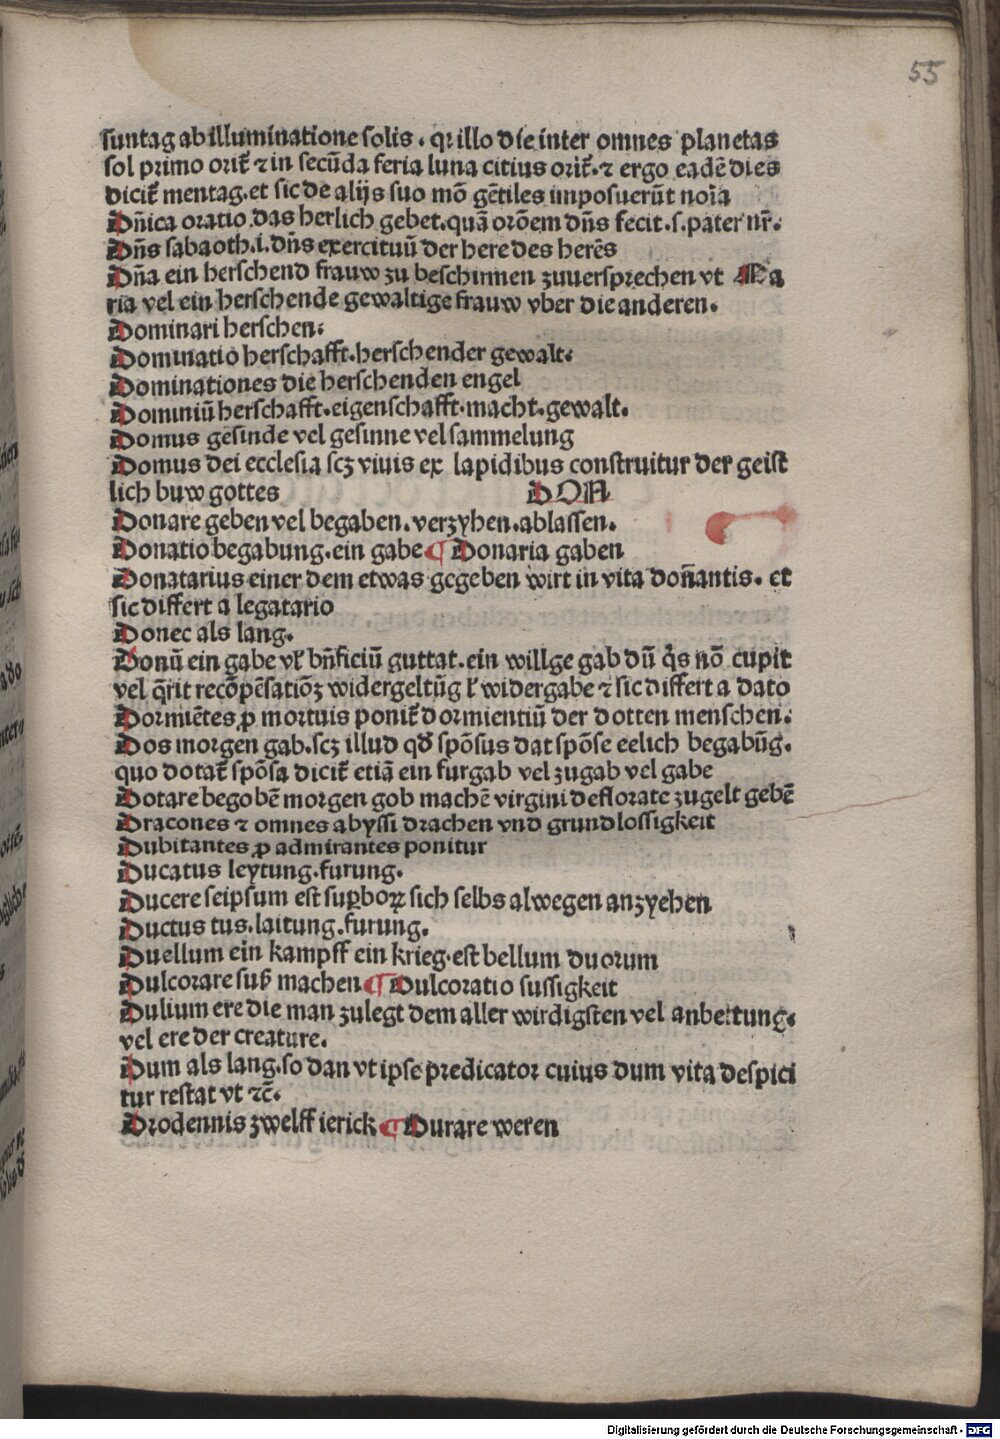 55
suntag ab illuminatione solis. qꝛ illo die inter omnes planetas
sol primo orit̃ ⁊ in secūda feria luna citius orit̃. ⁊ ergo eadē dies
dicit̃ mentag. et sic de alijs suo mõ gẽtiles imposuerũt noĩa
Dñica oratio das herlich gebet. quã orõem dñs fecit. s. pater nr̃.
Dñs sabaoth. i. dñs exercituũ der here des herẽs
Dña ein herschend frauw zu beschirmen zuuersprechen vt Ma
ria vel ein herschende gewaltige frauw vber die anderen.
Dominari herschen.
Dominatio herschafft. herschender gewalt.
Dominationes die herschenden engel
Dominiũ herschafft. eigenschafft. macht. gewalt.
Domus gesinde vel gesinne vel sammelung
Domus dei ecclesia scꝫ viuis ex lapidibus construitur der geist
lich buw gottes DON
Donare geben vel begaben. verzyhen. ablassen.
Donatio begabung. ein gabe ¶ Donaria gaben
Donatarius einer dem etwas gegeben wirt in vita doñantis. et
sic differt a legatario
Donec als lang.
Donũ ein gabe vl̃ bñficiũ guttat. ein willge gab dũ q̃s nõ cupit
vel q̃rit recõpẽsatiõꝫ widergeltũg l̃ widergabe ⁊ sic differt a dato
Dormiẽtes ꝓ mortuis ponit̃ dormientiũ der dotten menschen.
Dos morgen gab. scꝫ illud qđ spõsus dat spõse eelich begabũg.
quo dotat̃ spõsa dicit̃ etiã ein furgab vel zugab vel gabe
Dotare begobẽ morgen gob machẽ virgini deflorate zugelt gebẽ
Dracones ⁊ omnes abyssi drachen vnd grundlossigkeit
Dubitantes ꝓ admirantes ponitur
Ducatus leytung. furung.
Ducere seipsum est suꝑboꝝ sich selbs alwegen anzyehen
Ductus tus. laitung. furung.
Duellum ein kampff ein krieg. est bellum duorum
Dulcorare suß machen ¶ Dulcoratio sussigkeit
Dulium ere die man zulegt dem aller wirdigsten vel anbettung.
vel ere der creature.
Dum als lang. so dan vt ipse predicator cuius dum vita despici
tur restat vt ⁊c̃.
Drodennis zwelff ierick ¶ Durare weren
Digitalisierung gefördert durch die Deutsche Forschungsgemeinschaft - DFG